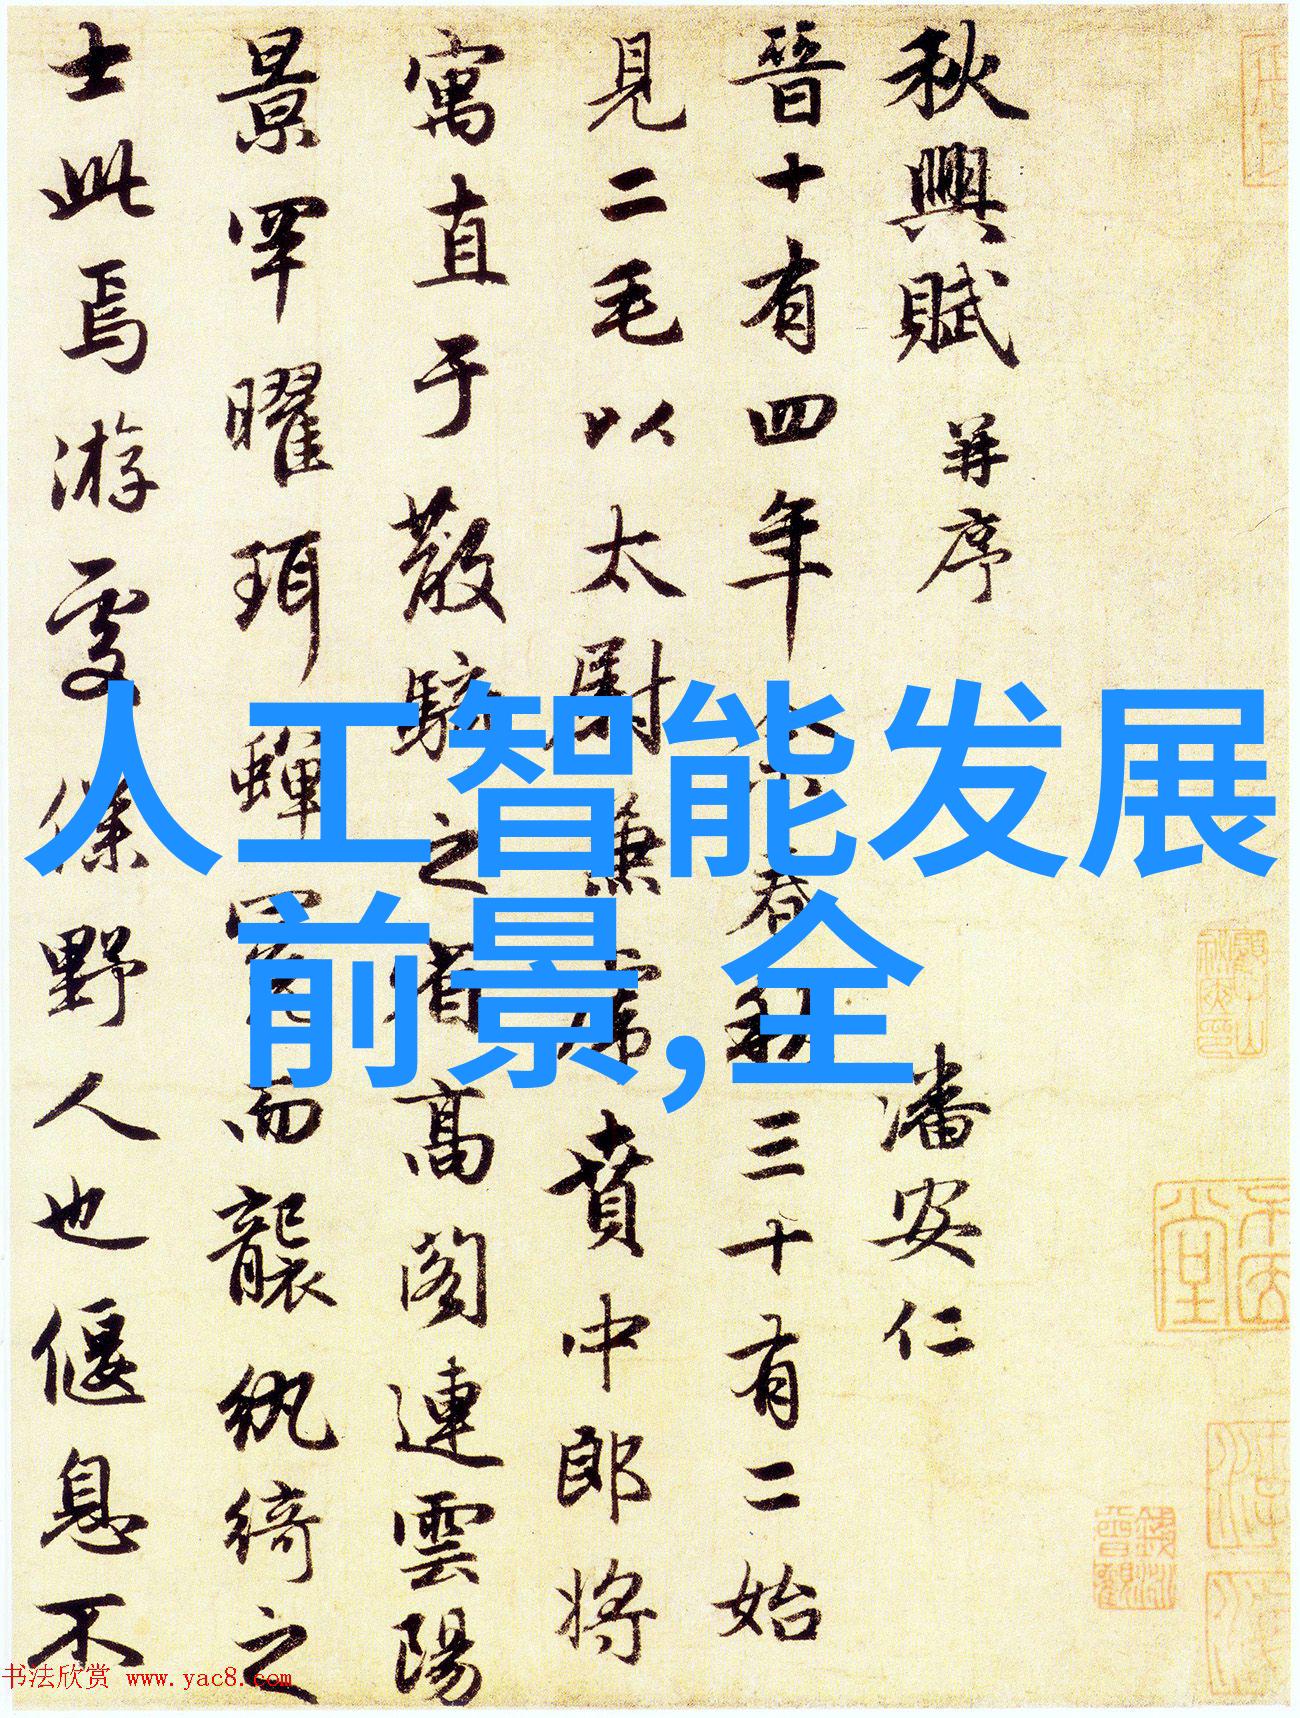 秋興賦 并序 潘安仁
晉十有四年 余春秋三十有二始
見二毛以太尉兼虎賁中郎将
寓直于散騎之省高閣連雲陽
景罕曜珥蟬冕而襲紈綺之
士此焉游處僕野人也偃息不
人工智能发展
前景,全
书法欣赏 www.yac8.com